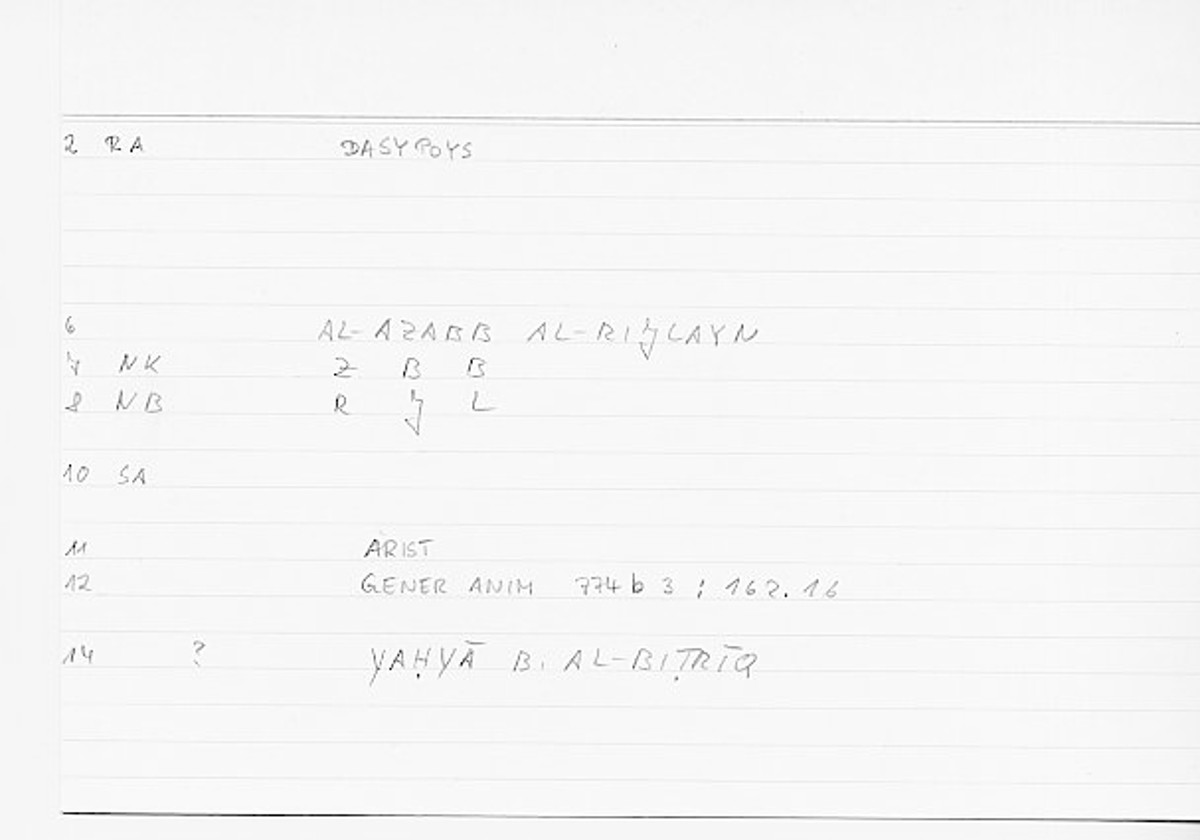 2 RA DASYPOYS
6 AL-AZABB AL-RIJLAYN
7 NK Z B B
8 NB R J L
10 SA
11 ARIST
12 GENER ANIM 774 b 3 ; 162.16
14 ? YAḤYĀ B. AL-BIṬRĪQ